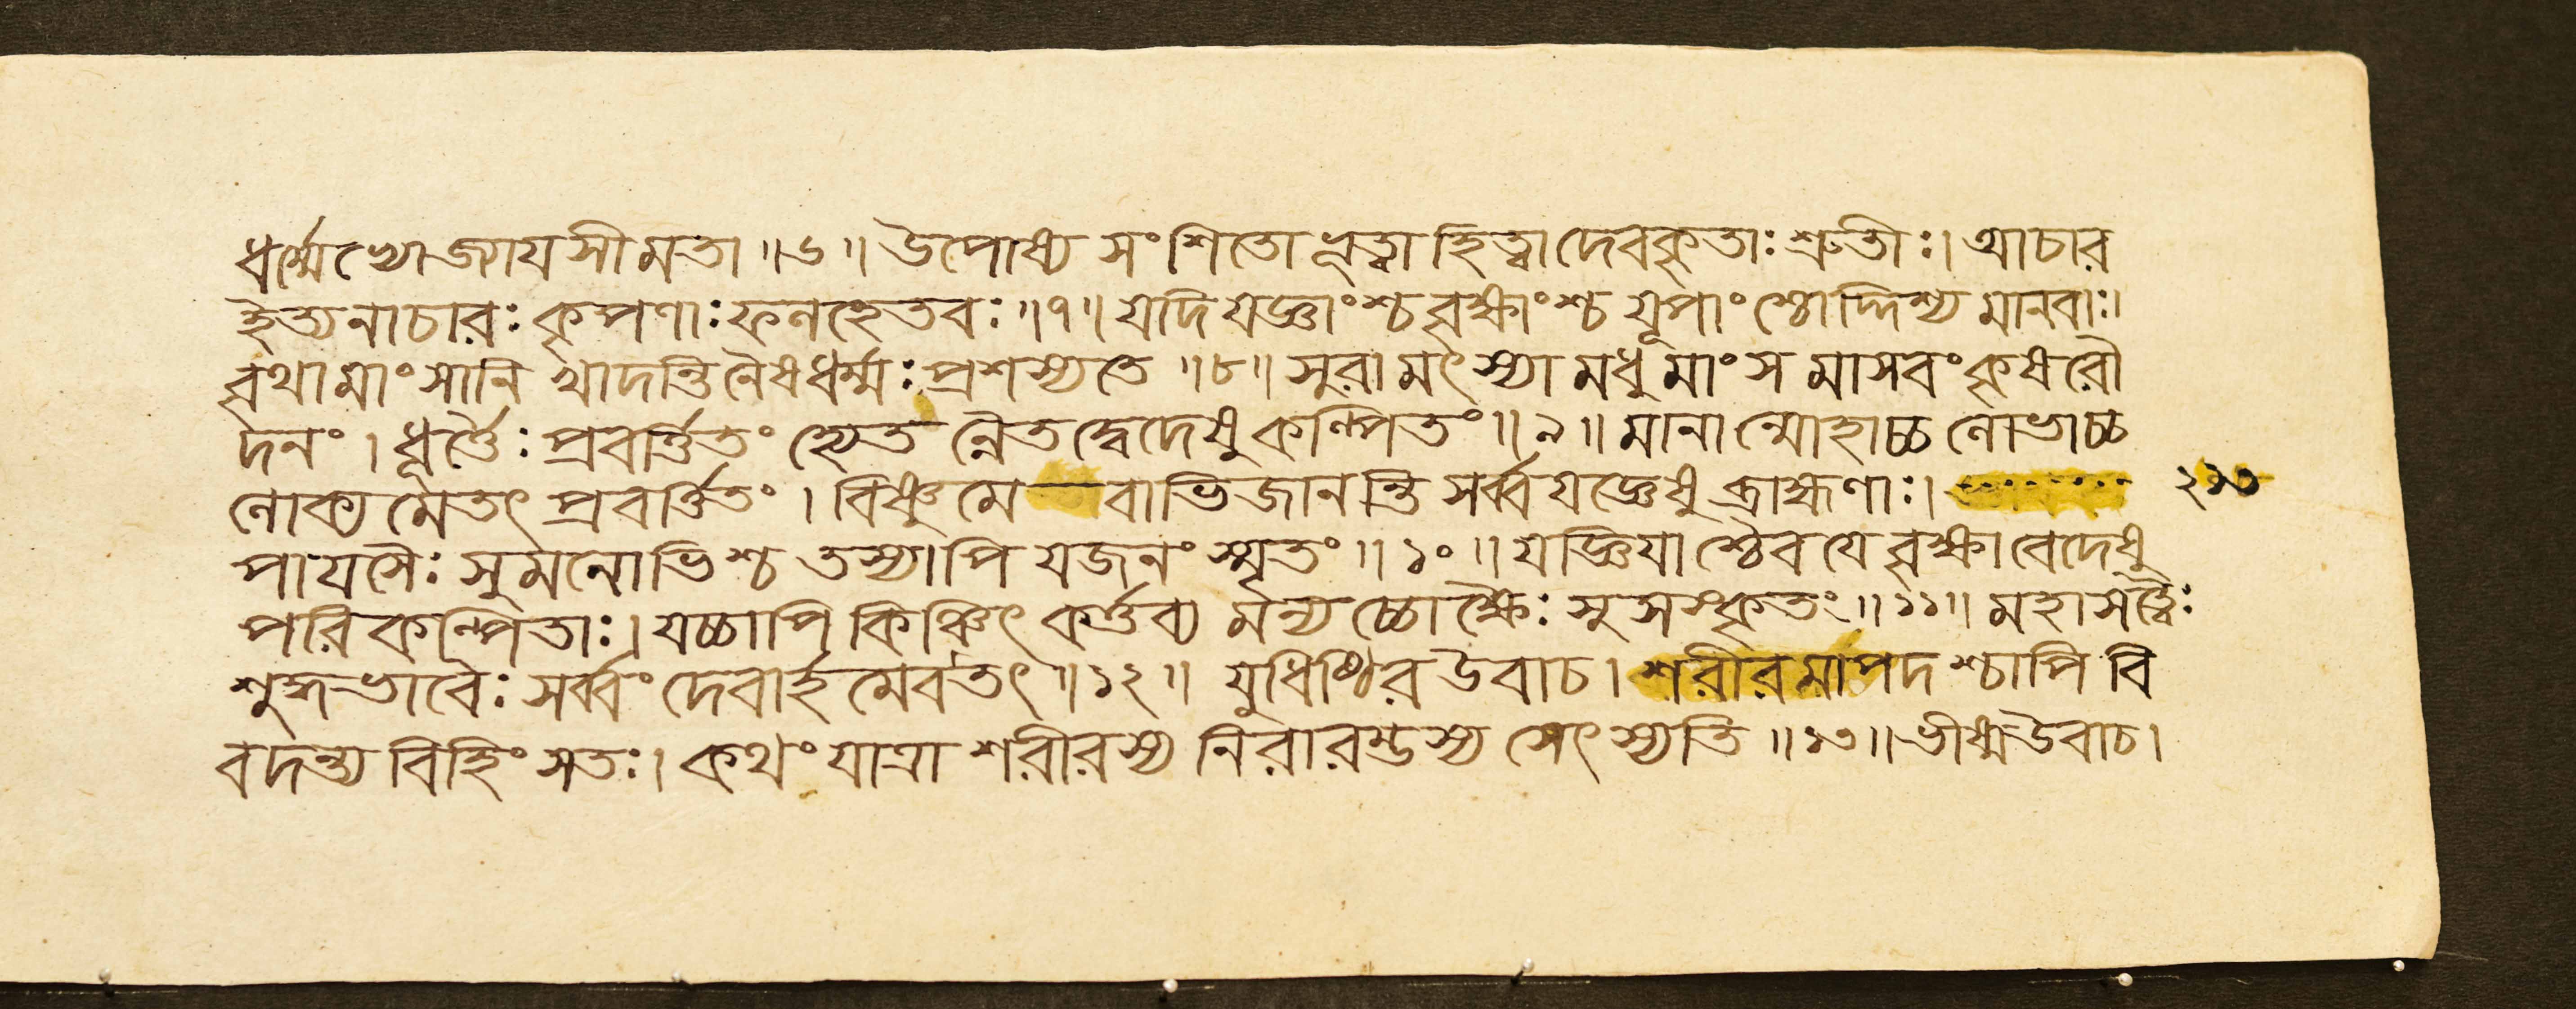 ধর্ম্মেভ্যো জ্যাযসী মতা ॥ ৬ ॥ উপোষ্য সংশিতো ভূত্বা হিত্বা দেবকৃতাঃ শ্রুতীঃ। আচার
ইত্যনাচারঃ কৃপণাঃ ফলহেতবঃ ॥ ৭ ॥ যদি যজ্ঞাংশ্চ বৃক্ষাংশ্চ যূপাংশ্চোদ্দিশ্য মানবাঃ।
বৃথা মাংসানি খাদন্তি নৈষ ধর্ম্মঃ প্রশস্যতে ॥ ৮ ॥ সুরা মৎস্যা মধু মাংসমাসবং কৃষরৌ
দনং । ধূর্ত্তৈঃ প্রবর্ত্তিতং হ্যেতন্নৈতদ্বেদেষু কল্পিতং ॥ ৯ ॥ মানান্মোহাচ্চ লোভাচ্চ
লোক্যমেতৎ প্রবর্ত্তিতং । বিষ্ণুমেবাভিজানন্তি সর্ব্বযজ্ঞেষু ব্রাহ্মণাঃ।
পাযসৈঃ সুমনোভিশ্চ তস্যাপি যজনং স্মৃতং ॥ ১০ ॥ যজ্ঞিযাশ্চৈব যে বৃক্ষা বেদেষু
পরিকল্পিতাঃ। যচ্চাপি কিঞ্চিৎ কর্ত্তব্যমন্যচ্চোক্ষৈঃ সুসংস্কৃতং ॥ ১১ ॥ মহাসত্ত্বৈঃ
শুদ্ধভাবৈঃ সর্ব্বং দেবার্হমেব তৎ ॥ ১২ ॥ যুধিষ্ঠির উবাচ। শরীরমাপদশ্চাপি বি
বদন্ত্যবিহিংসতঃ। কথং যাত্রা শরীরস্য নিরারম্ভস্য সেৎস্যতি ॥ ১৩ ॥ ভীষ্ম উবাচ।